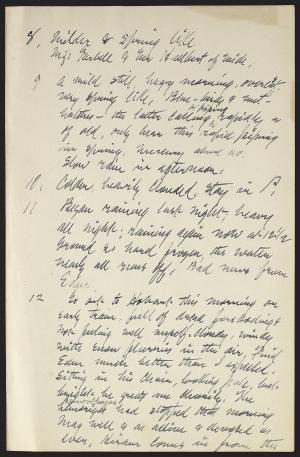 8, Milder & Spring like
9 A mild still, hazy morning, overcast
very Spring like, Blue-birds & nut-
hatches - the latter calling rapidly a
of old, only hear this rapid piping
in spring. Mercury about 40.
Slow rain in afternoon.
10, Colder, heavily clouded, stay in P,
11 Began raining last night - heavy
all night; raining again now at 12 1/2
Ground is hard frozen, the water
nearly all runs off, Bad news from
Eden.
12 Go out to Hobart this morning on
early train, full of dread forebodings
Not feeling well myself. Cloudy, windy
with snow flurries in the air, Find
Eden much better than I expected.
Sitting in his chair, looking pale, but
bright, he greets me cheerily. The
hemorrhages had stopped that morning
Mag well & as active & devoted as
ever. Hiram comes in from the